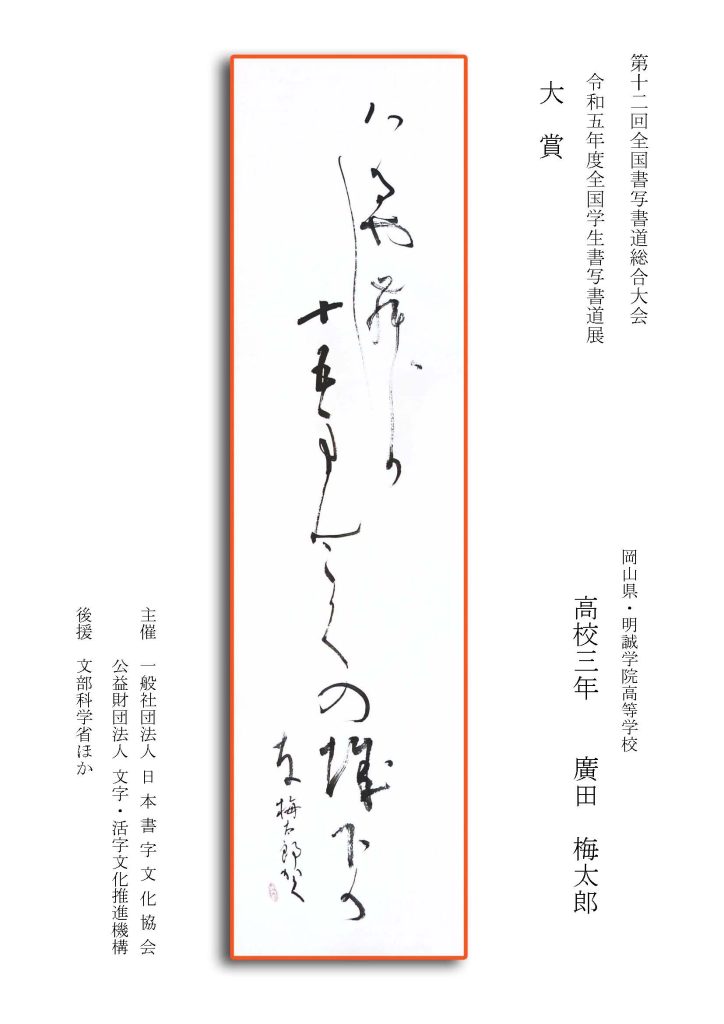 第十二回全国書写書道総合大会
令和五年度全国学生書写書道展
大賞
岡山県・明誠学院高等学校
高校三年 廣田 梅太郎
ハる也舞か
し
十五まんこくの城下か
な 梅太郎かく
主催 一般社団法人 日本書字文化協会
公益財団法人 文字・活字文化推進機構
後援 文部科学省ほか